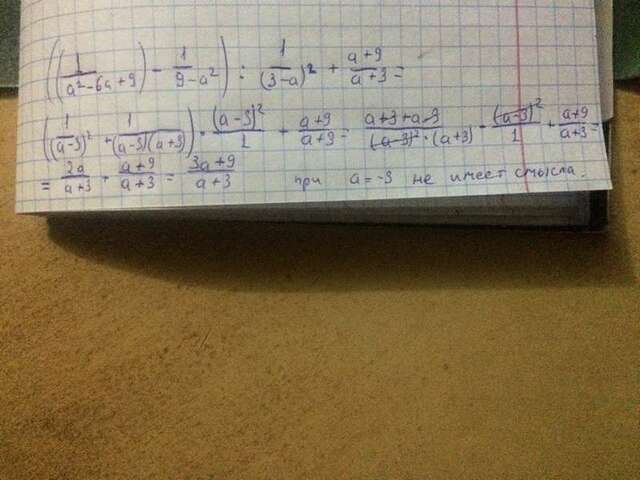 ((1/(a²-6a+9)) - 1/(9-a²)) : 1/(3-a)² + (a+9)/(a+3) =
(1/(a-3)² + 1/((a-3)(a+3))) · (a-3)²/1 + (a+9)/(a+9) = (a+3+a-3)/((a-3)²·(a+3)) · (a-3)²/1 + (a+9)/(a+3) =
= 2a/(a+3) + (a+9)/(a+3) = (3a+9)/(a+3) при a=-3 не имеет смысла.